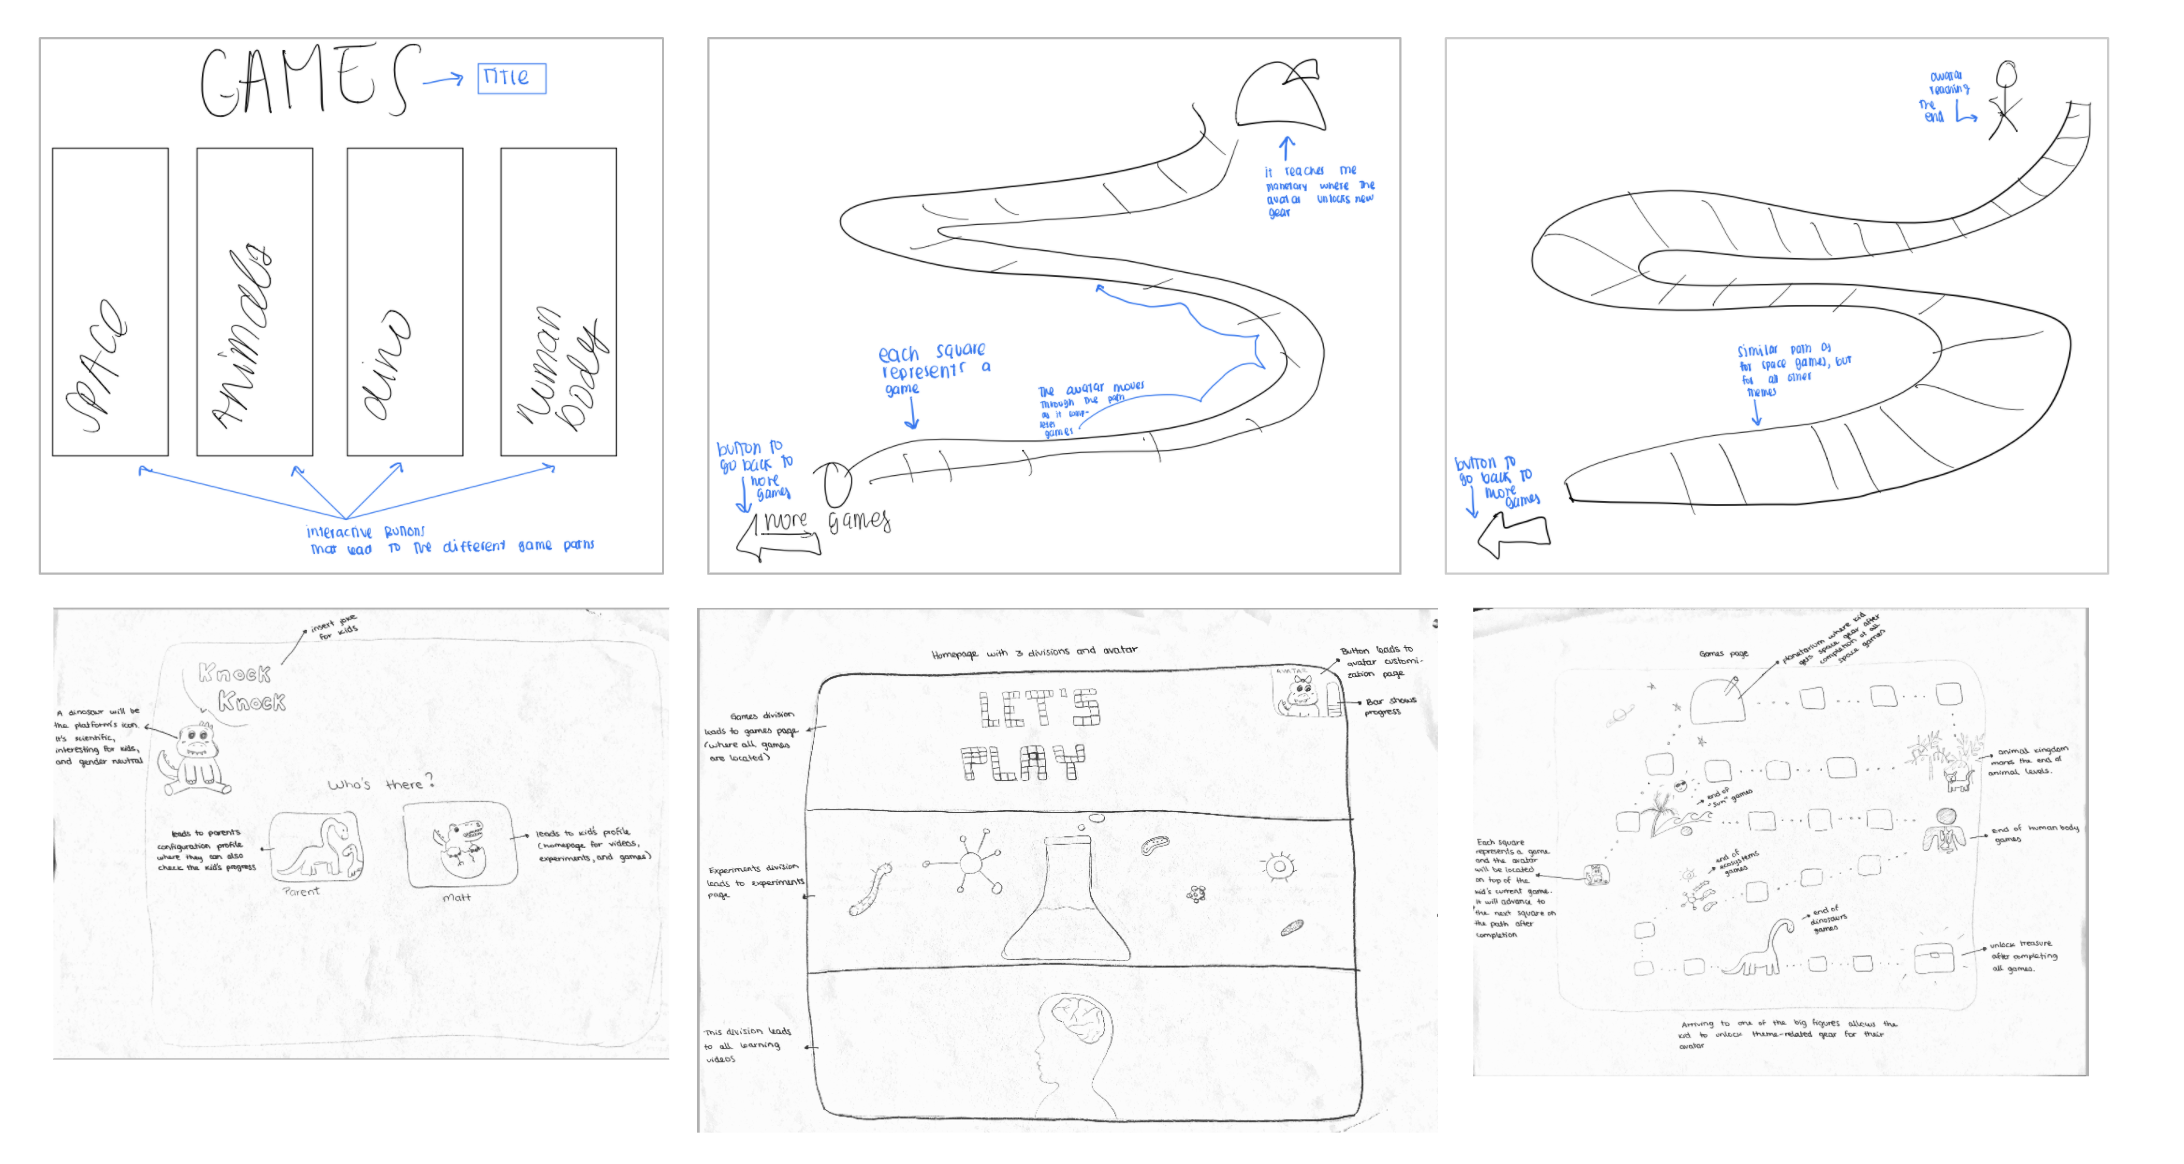 GAMES
TITLE
SPACE
Animals
dino
human
body
interactive buttons
that lead to the different game paths
it reaches the
planetary where the
avatar unlocks new
gear
each square
represents a
game
The avatar moves
through the path
as it
games
button to
go back to
more
games
more games
avatar
reaching
the
end
similar path as
for space games, but
for all other
themes
button to
go back to
more
games
insert joke
for kids
Knock
Knock
A dinosaur will be
the platform's icon.
It's scientific,
interesting for kids,
and gender neutral
Who's there?
leads to parents
configuration profile
where they can also
check the kid's progress
leads to kid's profile
(homepage for videos,
experiments, and games)
Parent
Matt
Homepage with 3 divisions and avatar
Button leads to
avatar customi-
zation page
AVATAR
Bar shows
progress
LET'S
PLAY
Games division
leads to games page
(where all games
are located)
Experiments division
leads to experiments
page
This division leads
to all learning
videos
Games page
planetarium where kid
gets space gear after
completion of all
space games
animal kingdom
marks the end of
animal levels.
end of
"sun" games
end of human body
games
Each square
represents a game
and the avatar
will be located
on top of the
kid's current game.
It will advance to
the next square on
the path after
completion
end of
ecosystems
games
end of
dinosaurs
games
unlock treasure
after completing
all games.
Arriving to one of the big figures allows the
kid to unlock theme-related gear for their
avatar